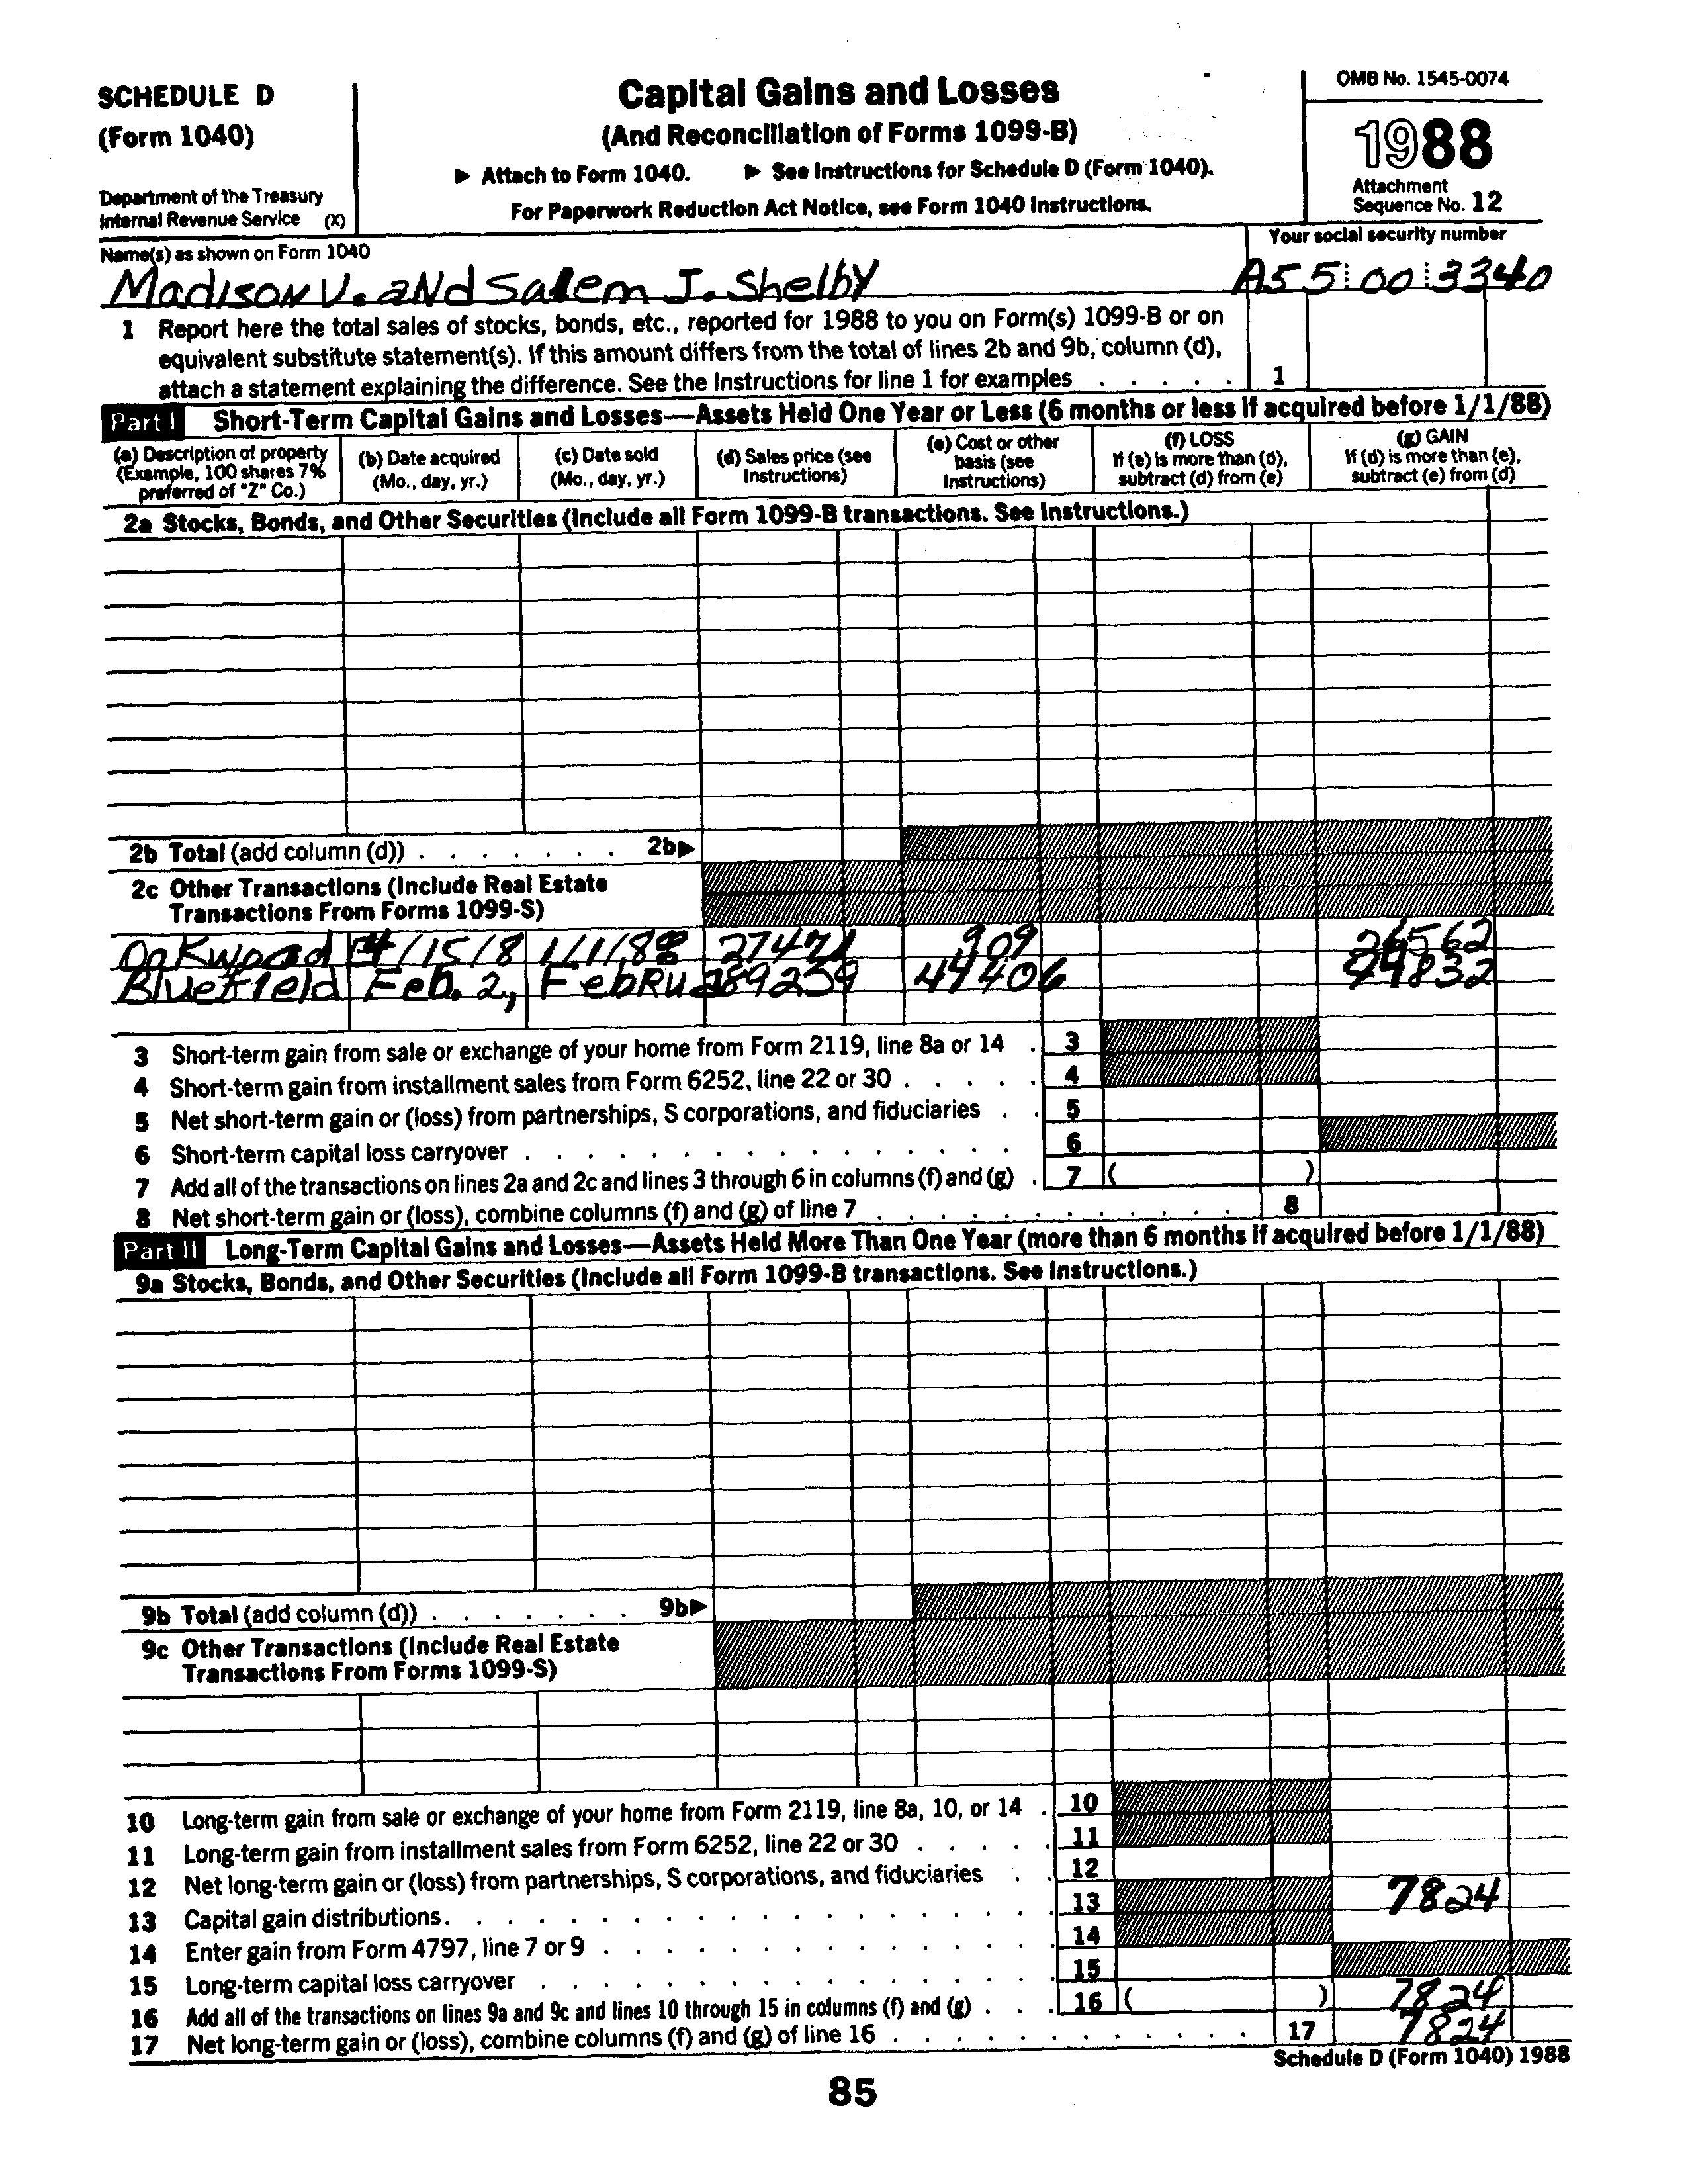 SCHEDULE D
(Form 1040)
Department of the Treasury
Internal Revenue Service (X)
Capital Gains and Losses
(And Reconciliation of Forms 1099-B)
▶ Attach to Form 1040. ▶ See Instructions for Schedule D (Form 1040).
For Paperwork Reduction Act Notice, see Form 1040 Instructions.
OMB No. 1545-0074
1988
Attachment
Sequence No. 12
Name(s) as shown on Form 1040
Madison V. and Salem J. Shelby
Your social security number
A55 00 3340
1 Report here the total sales of stocks, bonds, etc., reported for 1988 to you on Form(s) 1099-B or on
equivalent substitute statement(s). If this amount differs from the total of lines 2b and 9b, column (d),
attach a statement explaining the difference. See the Instructions for line 1 for examples . . . . . 1
Part I Short-Term Capital Gains and Losses—Assets Held One Year or Less (6 months or less if acquired before 1/1/88)
(a) Description of property
(Example, 100 shares 7%
preferred of "Z" Co.)
(b) Date acquired
(Mo., day, yr.)
(c) Date sold
(Mo., day, yr.)
(d) Sales price (see
Instructions)
(e) Cost or other
basis (see
Instructions)
(f) LOSS
If (e) is more than (d),
subtract (d) from (e)
(g) GAIN
If (d) is more than (e),
subtract (e) from (d)
2a Stocks, Bonds, and Other Securities (Include all Form 1099-B transactions. See Instructions.)
2b Total (add column (d)) . . . . . . . 2b▶
2c Other Transactions (Include Real Estate
Transactions From Forms 1099-S)
Oakwood 4/15/8 1/1/88 27471 909 26562
Bluefield Feb. 2, Februa 89239 44406 44832
3 Short-term gain from sale or exchange of your home from Form 2119, line 8a or 14 . 3
4 Short-term gain from installment sales from Form 6252, line 22 or 30 . . . . . 4
5 Net short-term gain or (loss) from partnerships, S corporations, and fiduciaries . . 5
6 Short-term capital loss carryover . . . . . . . . . . . . . . . . 6
7 Add all of the transactions on lines 2a and 2c and lines 3 through 6 in columns (f) and (g) . 7 ( )
8 Net short-term gain or (loss), combine columns (f) and (g) of line 7 . . . . . . . . . . . . 8
Part II Long-Term Capital Gains and Losses—Assets Held More Than One Year (more than 6 months if acquired before 1/1/88)
9a Stocks, Bonds, and Other Securities (Include all Form 1099-B transactions. See Instructions.)
9b Total (add column (d)) . . . . . . . 9b▶
9c Other Transactions (Include Real Estate
Transactions From Forms 1099-S)
10 Long-term gain from sale or exchange of your home from Form 2119, line 8a, 10, or 14 . 10
11 Long-term gain from installment sales from Form 6252, line 22 or 30 . . . . . 11
12 Net long-term gain or (loss) from partnerships, S corporations, and fiduciaries . . 12
13 Capital gain distributions. . . . . . . . . . . . . . . . . . . 13 7824
14 Enter gain from Form 4797, line 7 or 9 . . . . . . . . . . . . . . 14
15 Long-term capital loss carryover . . . . . . . . . . . . . . . . 15
16 Add all of the transactions on lines 9a and 9c and lines 10 through 15 in columns (f) and (g) . . . 16 ( ) 7824
17 Net long-term gain or (loss), combine columns (f) and (g) of line 16 . . . . . . . . . . . . 17 7824
Schedule D (Form 1040) 1988
85